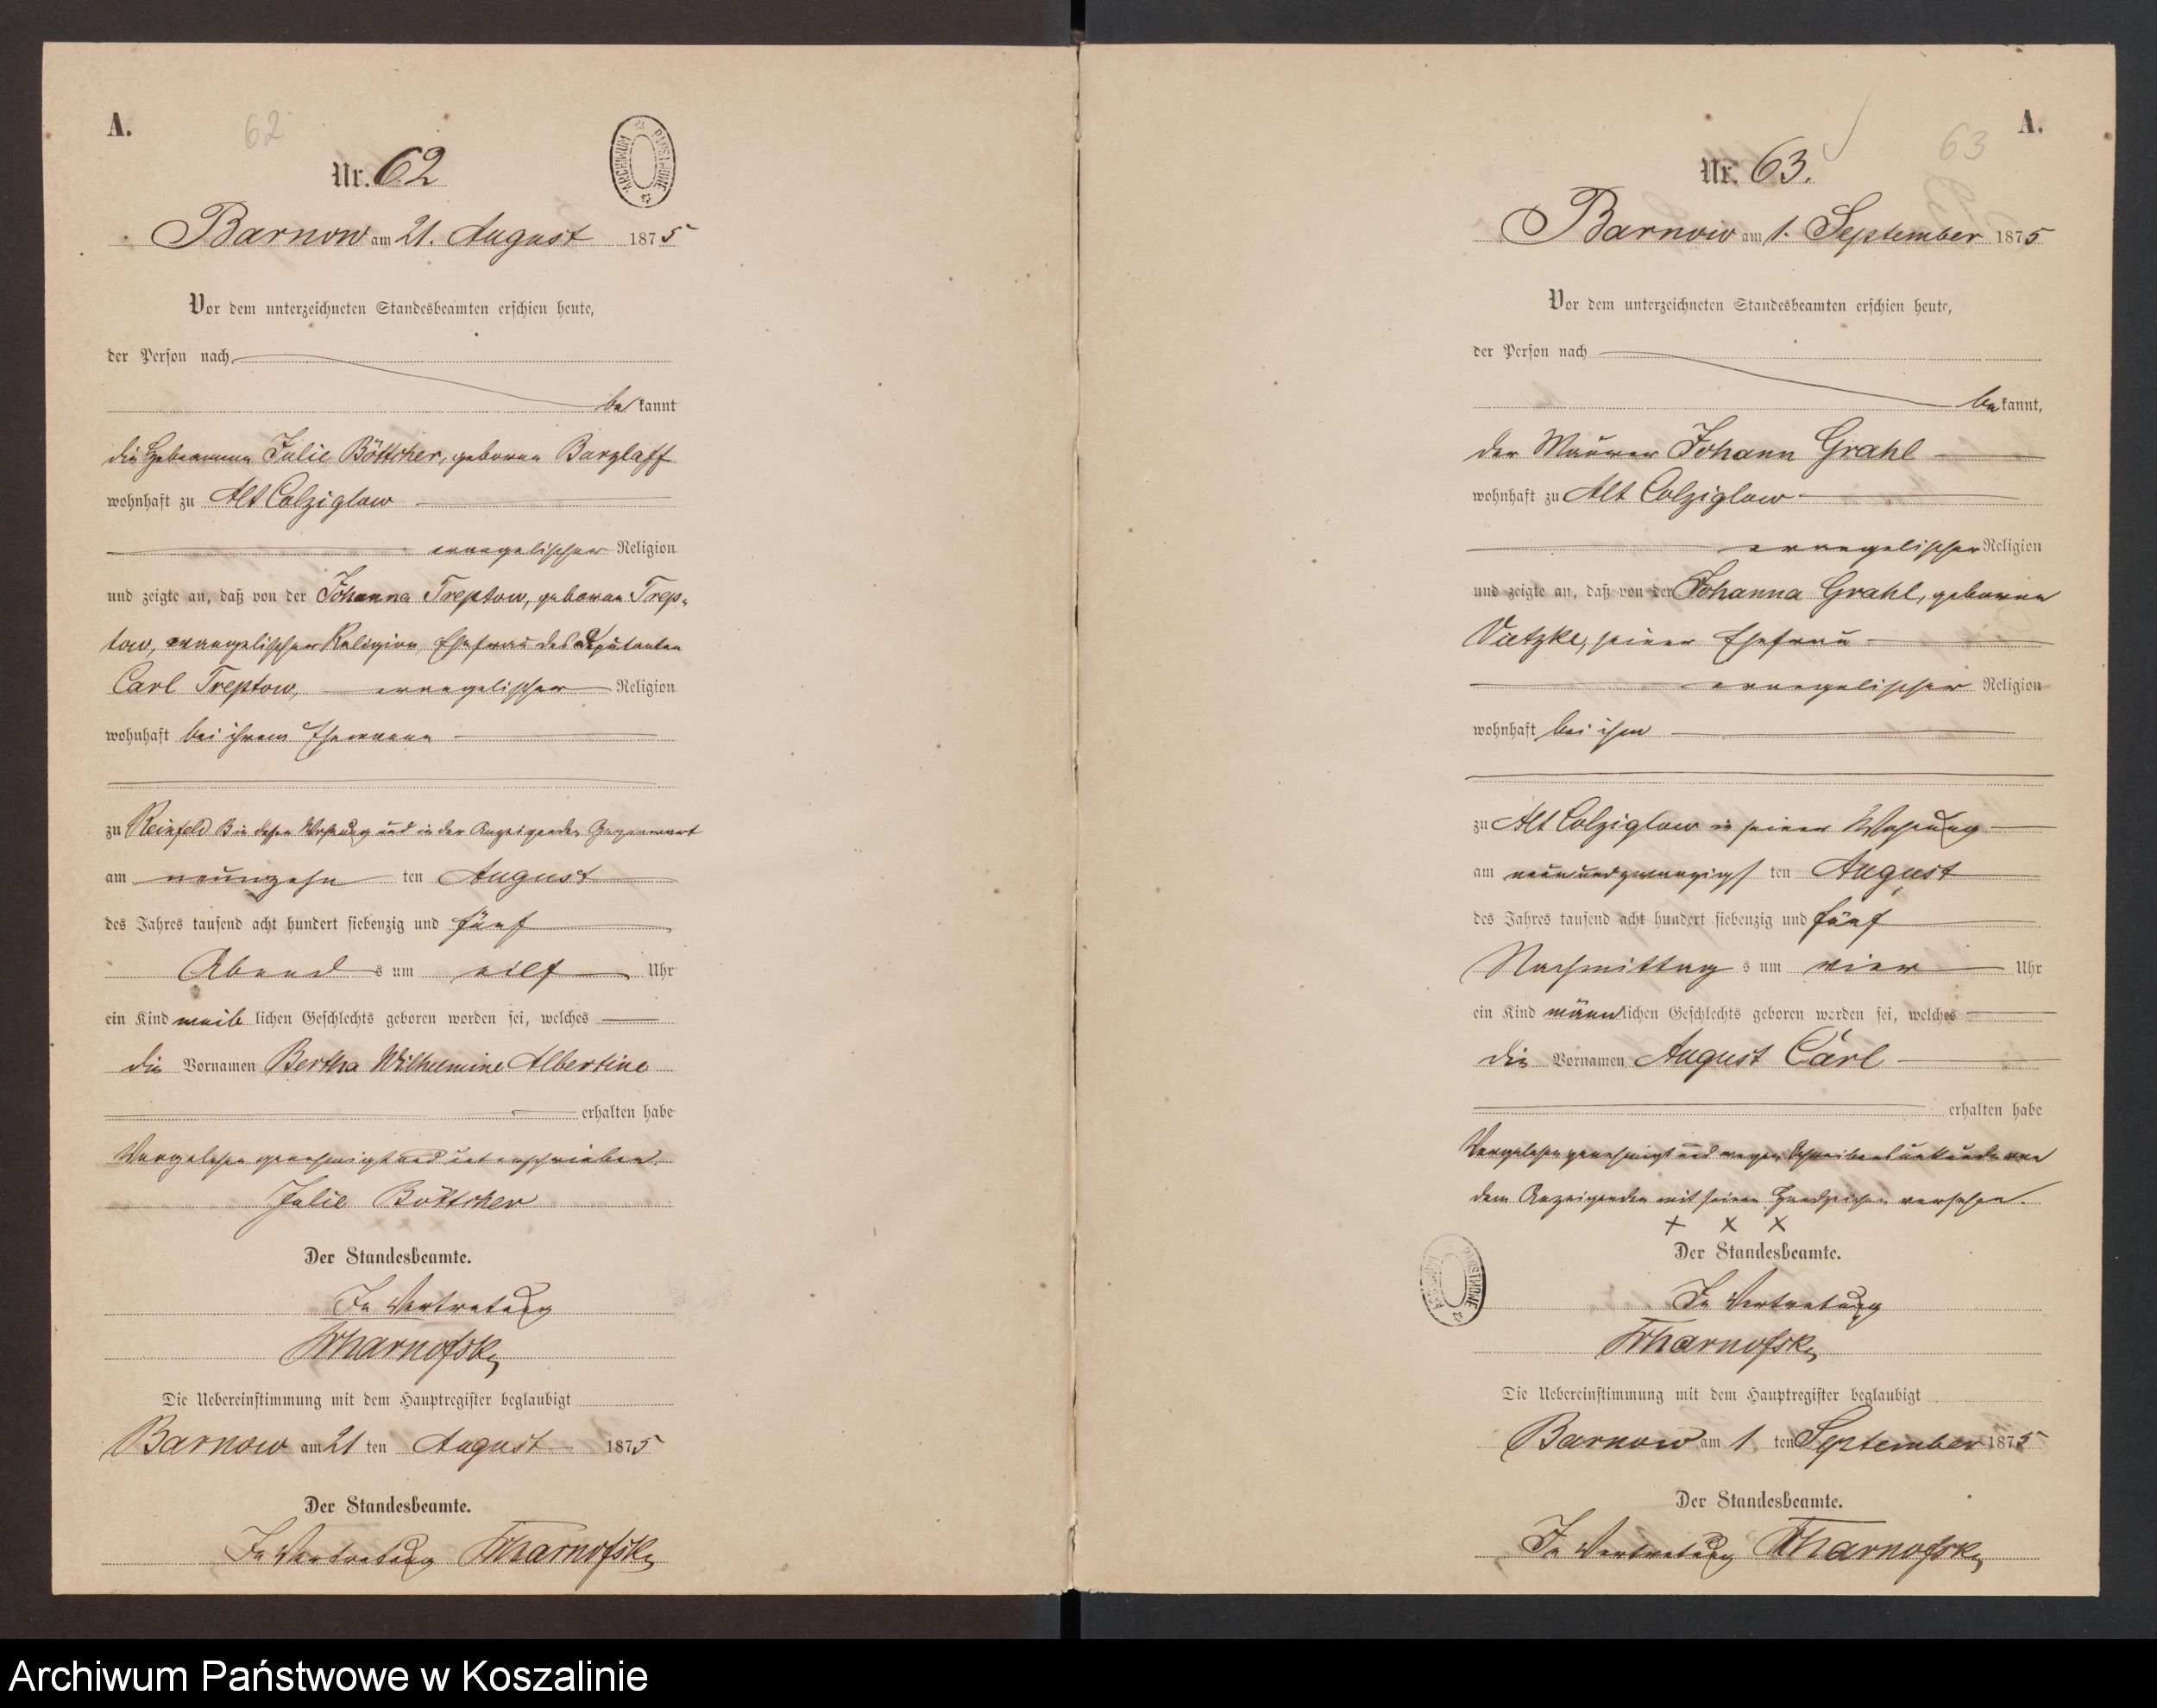 A.
62
Nr. 62
ARCHIWUM PAŃSTWOWE
Barnow am 21. August 1875
Vor dem unterzeichneten Standesbeamten erschien heute,
der Person nach
bekannt
die Hebeamme Julie Böttcher, geborene Barzlaff
wohnhaft zu Alt Colziglow
evangelischer Religion
und zeigte an, daß von der Johanna Treptow, geborene Trep-
tow, evangelischer Religion, Ehefrau des Deputanten
Carl Treptow, evangelischer Religion
wohnhaft bei ihrem Ehemann
zu Reinfeld B in dessen Wohnung und in der Anzeigenden Gegenwart
am neunzehn ten August
des Jahres tausend acht hundert siebenzig und fünf
Abend s um eilf Uhr
ein Kind weib lichen Geschlechts geboren worden sei, welches
die Vornamen Bertha Wilhelmine Albertine
erhalten habe
Vorgelesen genehmigt und unterschrieben.
Julie Böttcher
Der Standesbeamte.
In Vertretung
Die Uebereinstimmung mit dem Hauptregister beglaubigt
Barnow am 21 ten August 1875
Der Standesbeamte.
In Vertretung
A.
63
Nr. 63.
Barnow am 1. September 1875
Vor dem unterzeichneten Standesbeamten erschien heute,
der Person nach
bekannt,
der Maurer Johann Grahl
wohnhaft zu Alt Colziglow
evangelischer Religion
und zeigte an, daß von der Johanna Grahl, geborene
Vietzke, seiner Ehefrau
evangelischer Religion
wohnhaft bei ihm
zu Alt Colziglow in seiner Wohnung
am neunundzwanzigs ten August
des Jahres tausend acht hundert siebenzig und fünf
Nachmittag s um vier Uhr
ein Kind männ lichen Geschlechts geboren worden sei, welches
die Vornamen August Carl
erhalten habe
Vorgelesen genehmigt und wegen Schreibensunkunde von
dem Anzeigenden mit seinem Handzeichen versehen.
x x x
Der Standesbeamte.
In Vertretung
Die Uebereinstimmung mit dem Hauptregister beglaubigt
Barnow am 1 ten September 1875
Der Standesbeamte.
In Vertretung
Archiwum Państwowe w Koszalinie